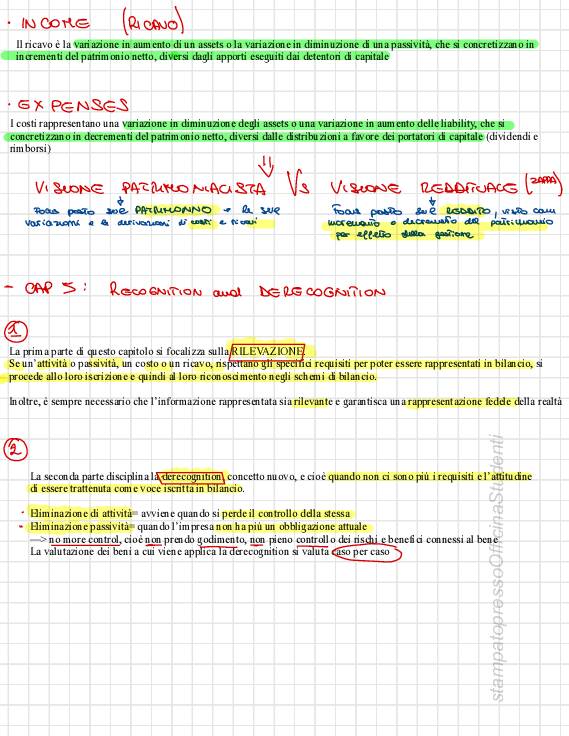 · INCOME (RICAVO)
Il ricavo è la variazione in aumento di un assets o la variazione in diminuzione di una passività, che si concretizzano in
incrementi del patrimonio netto, diversi dagli apporti eseguiti dai detentori di capitale
· EXPENSES
I costi rappresentano una variazione in diminuzione degli assets o una variazione in aumento delle liability, che si
concretizzano in decrementi del patrimonio netto, diversi dalle distribuzioni a favore dei portatori di capitale (dividendi e
rimborsi)
VISIONE PATRIMONIALISTA VS VISIONE REDDITUALE (ZAPPA)
Focus posto sul PATRIMONIO e le sue
variazioni e le derivazioni di costi e ricavi
Focus posto sul REDDITO, visto come
incremento o decremento del patrimonio
per effetto della gestione
- CAP 5: RECOGNITION and DERECOGNITION
1
La prima parte di questo capitolo si focalizza sulla RILEVAZIONE.
Se un'attività o passività, un costo o un ricavo, rispettano gli specifici requisiti per poter essere rappresentati in bilancio, si
procede allo loro iscrizione e quindi al loro riconoscimento negli schemi di bilancio.
Inoltre, è sempre necessario che l'informazione rappresentata sia rilevante e garantisca una rappresentazione fedele della realtà
2
La seconda parte disciplina la derecognition, concetto nuovo, e cioè quando non ci sono più i requisiti e l'attitudine
di essere trattenuta come voce iscritta in bilancio.
· Eliminazione di attività= avviene quando si perde il controllo della stessa
· Eliminazione passività= quando l'impresa non ha più un obbligazione attuale
—> no more control, cioè non prendo godimento, non pieno controllo dei rischi e benefici connessi al bene
La valutazione dei beni a cui viene applica la derecognition si valuta caso per caso
stampatopressoOfficinaStudenti